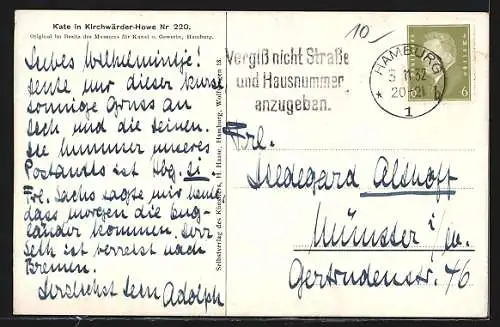 Kate in Kirchwärder-Howe Nr 220.
Original im Besitz des Museums für Kunst u. Gewerbe, Hamburg.
Liebes Wilhelmintje!
Heute nur dieser kurze
sonnige Gruss an
Dich und die Deinen.
Die Nummer unseres
Postamts ist Hbg. 21.
Frl. Sachs sagte mir heute,
dass morgen die Eng-
länder kommen. Herr
Seth ist verreist nach
Bremen.
Herzlichst Dein Adolph
Selbstverlag des Künstlers, H. Haase, Hamburg, Wolfshagen 13.
10
Vergiß nicht Straße
und Hausnummer
anzugeben.
HAMBURG
20-21 b
1
6
Frl.
Hildegard Althoff
Münster i/W.
Gertrudenstr. 46